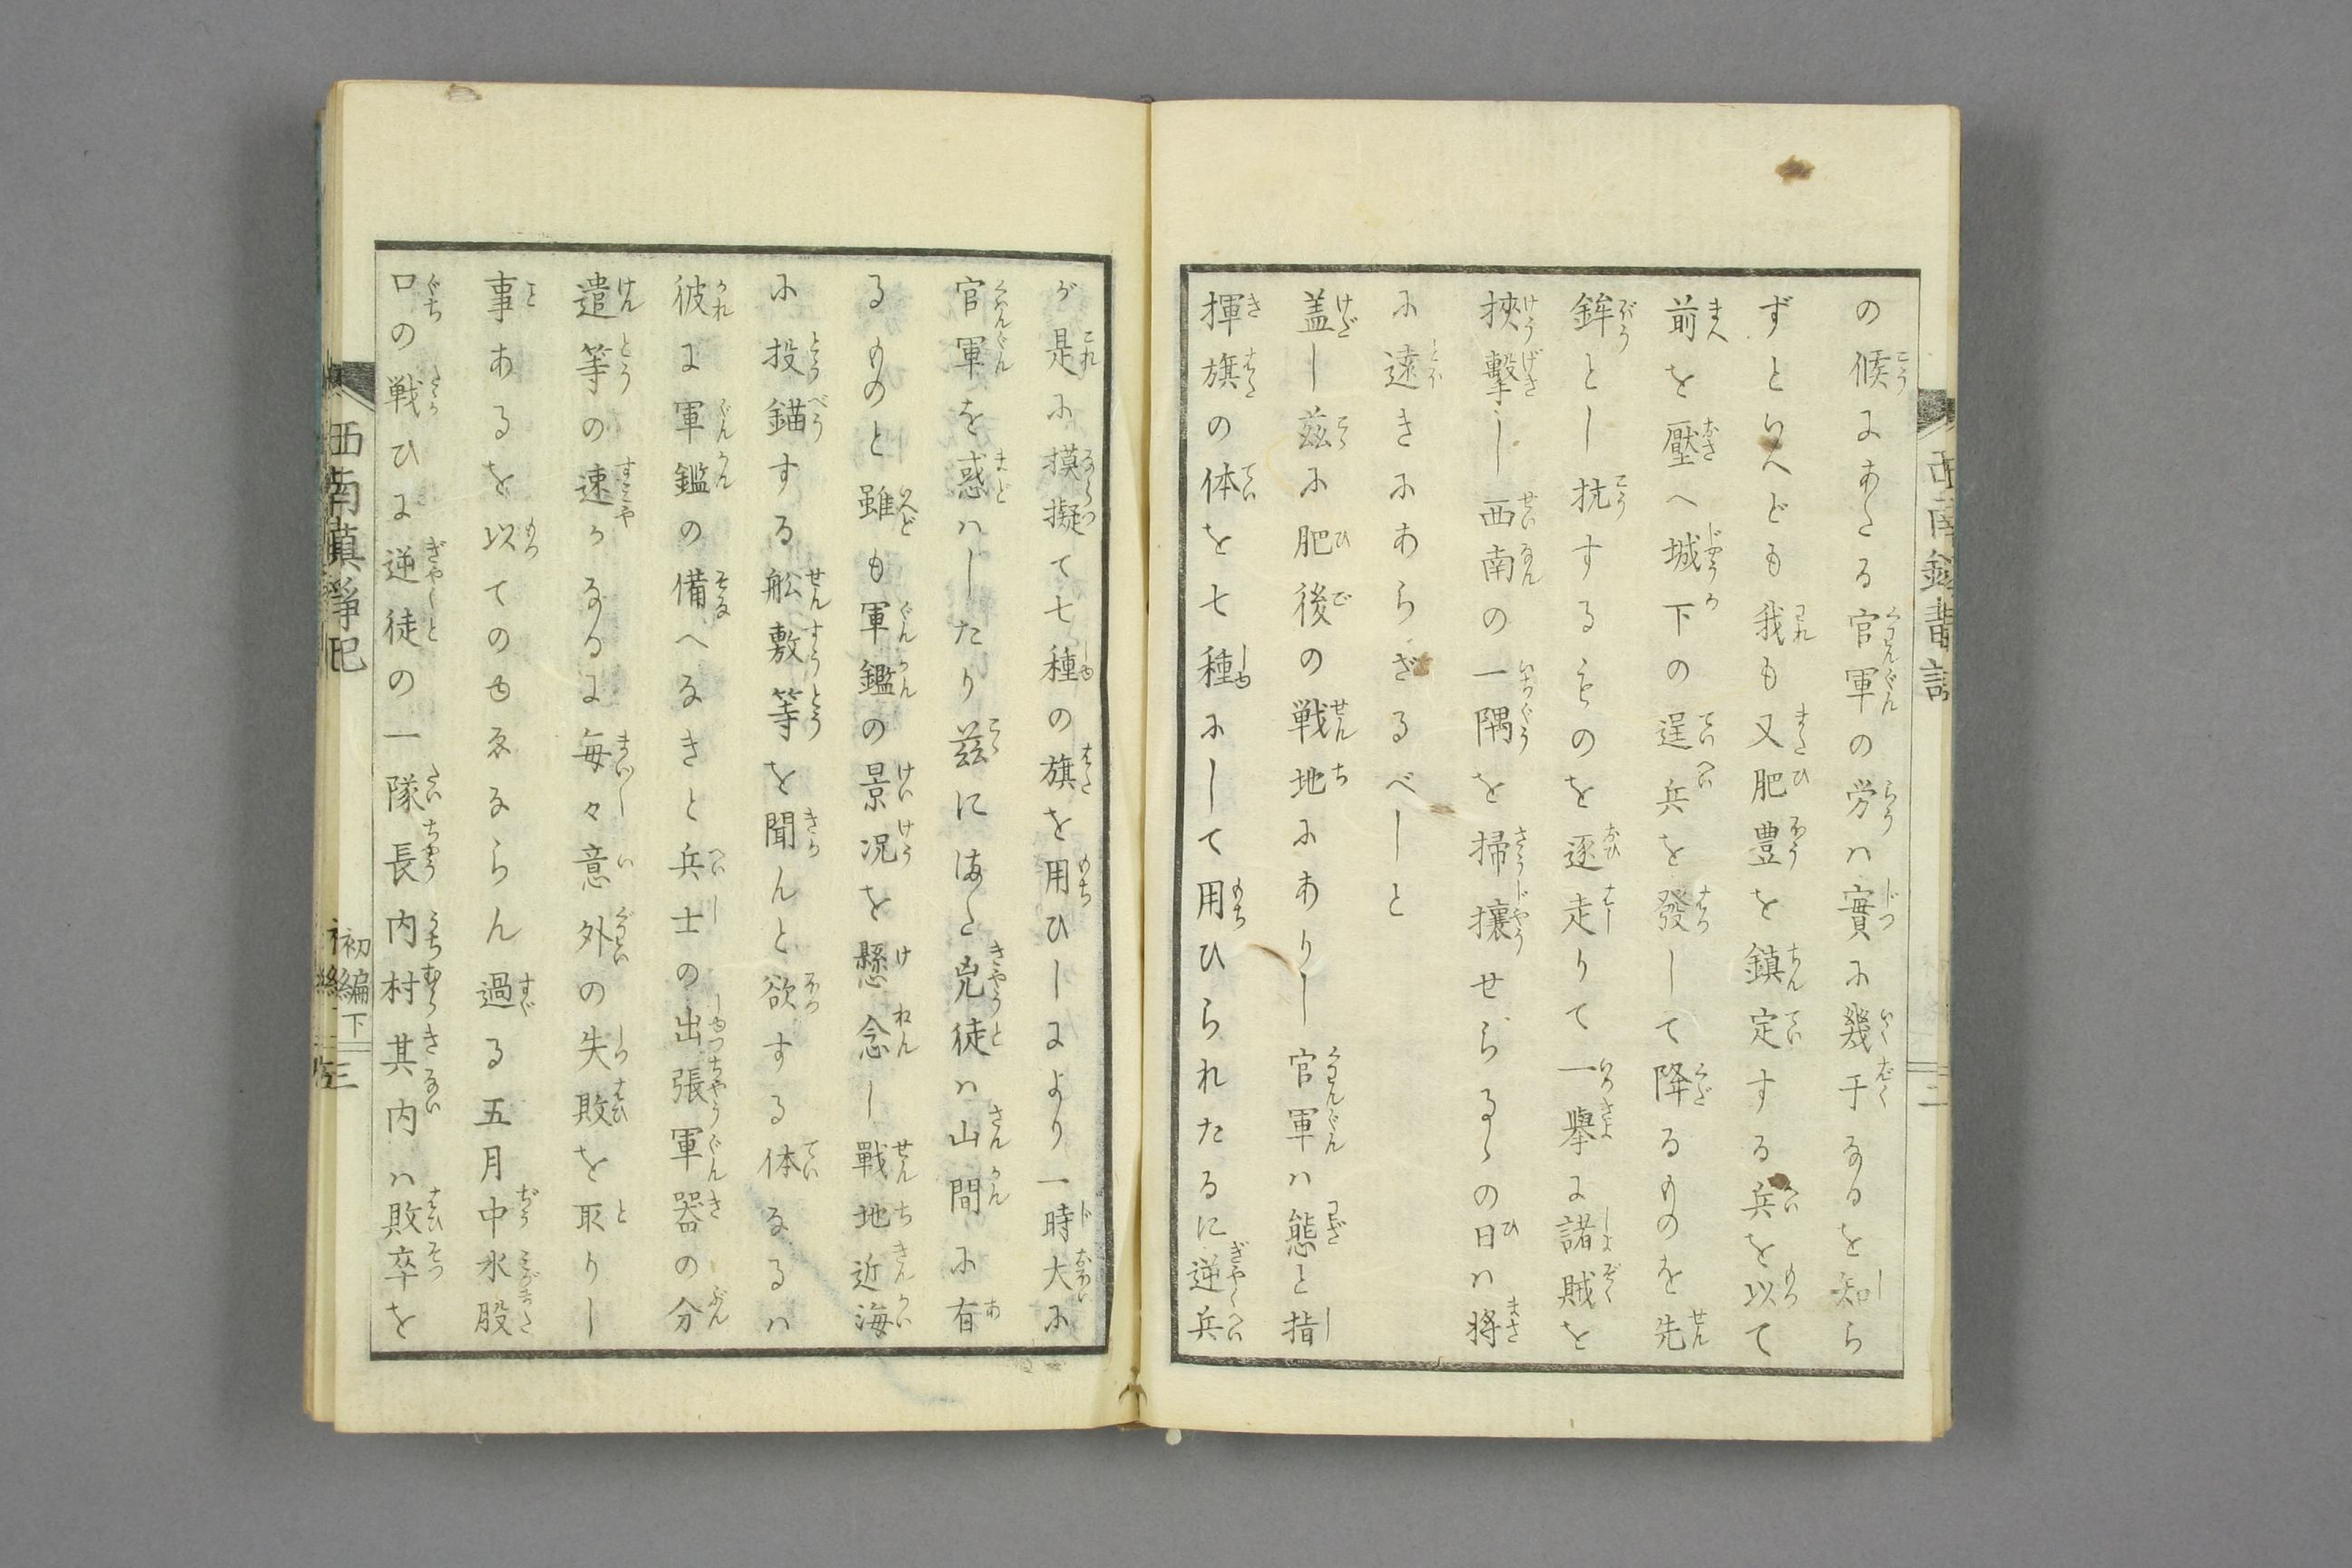 の候にあたる官軍の労ハ實に幾于なるを知ら
ずといへども我も又肥豊を鎮定する兵を以て
前を壓へ城下の逞兵を發して降るものを先
鉾とし抗するものを逐走りて一擧に諸賊を
挾擊し西南の一隅を掃攘せらるゝの日ハ将
に遠きにあらざるべしと
盖し茲に肥後の戦地にありし官軍ハ態と指
揮旗の体を七種にして用ひられたるに逆兵
が是に摸擬て七種の旗を用ひしにより一時大に
官軍を惑ハしたり茲にまた兇徒ハ山間に有
るものと雖も軍鑑の景況を懸念し戰地近海
に投錨する舩敷等を聞んと欲する体なるハ
彼に軍鑑の備へなきと兵士の出張軍器の分
遣等の速かなるに毎々意外の失敗を取りし
事あるを以てのゆゑならん過る五月中水股
口の戦ひに逆徒の一隊長内村其内ハ敗卒を
初編下
三
二